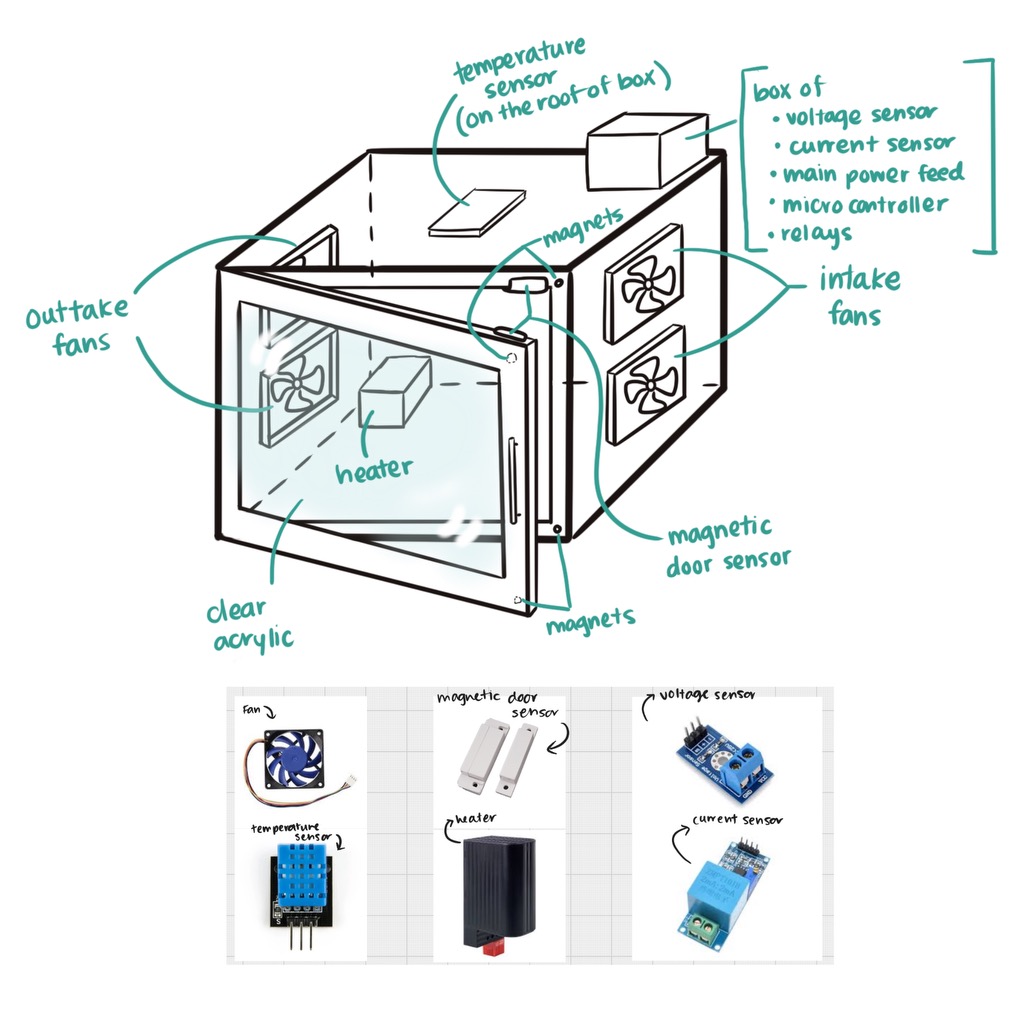 temperature
sensor
(on the roof of box)
box of
• voltage sensor
• current sensor
• main power feed
• micro controller
• relays
magnets
outtake
fans
intake
fans
heater
magnetic
door sensor
clear
acrylic
magnets
Fan
magnetic door
sensor
voltage sensor
temperature
sensor
heater
current sensor
GND
VCC
S